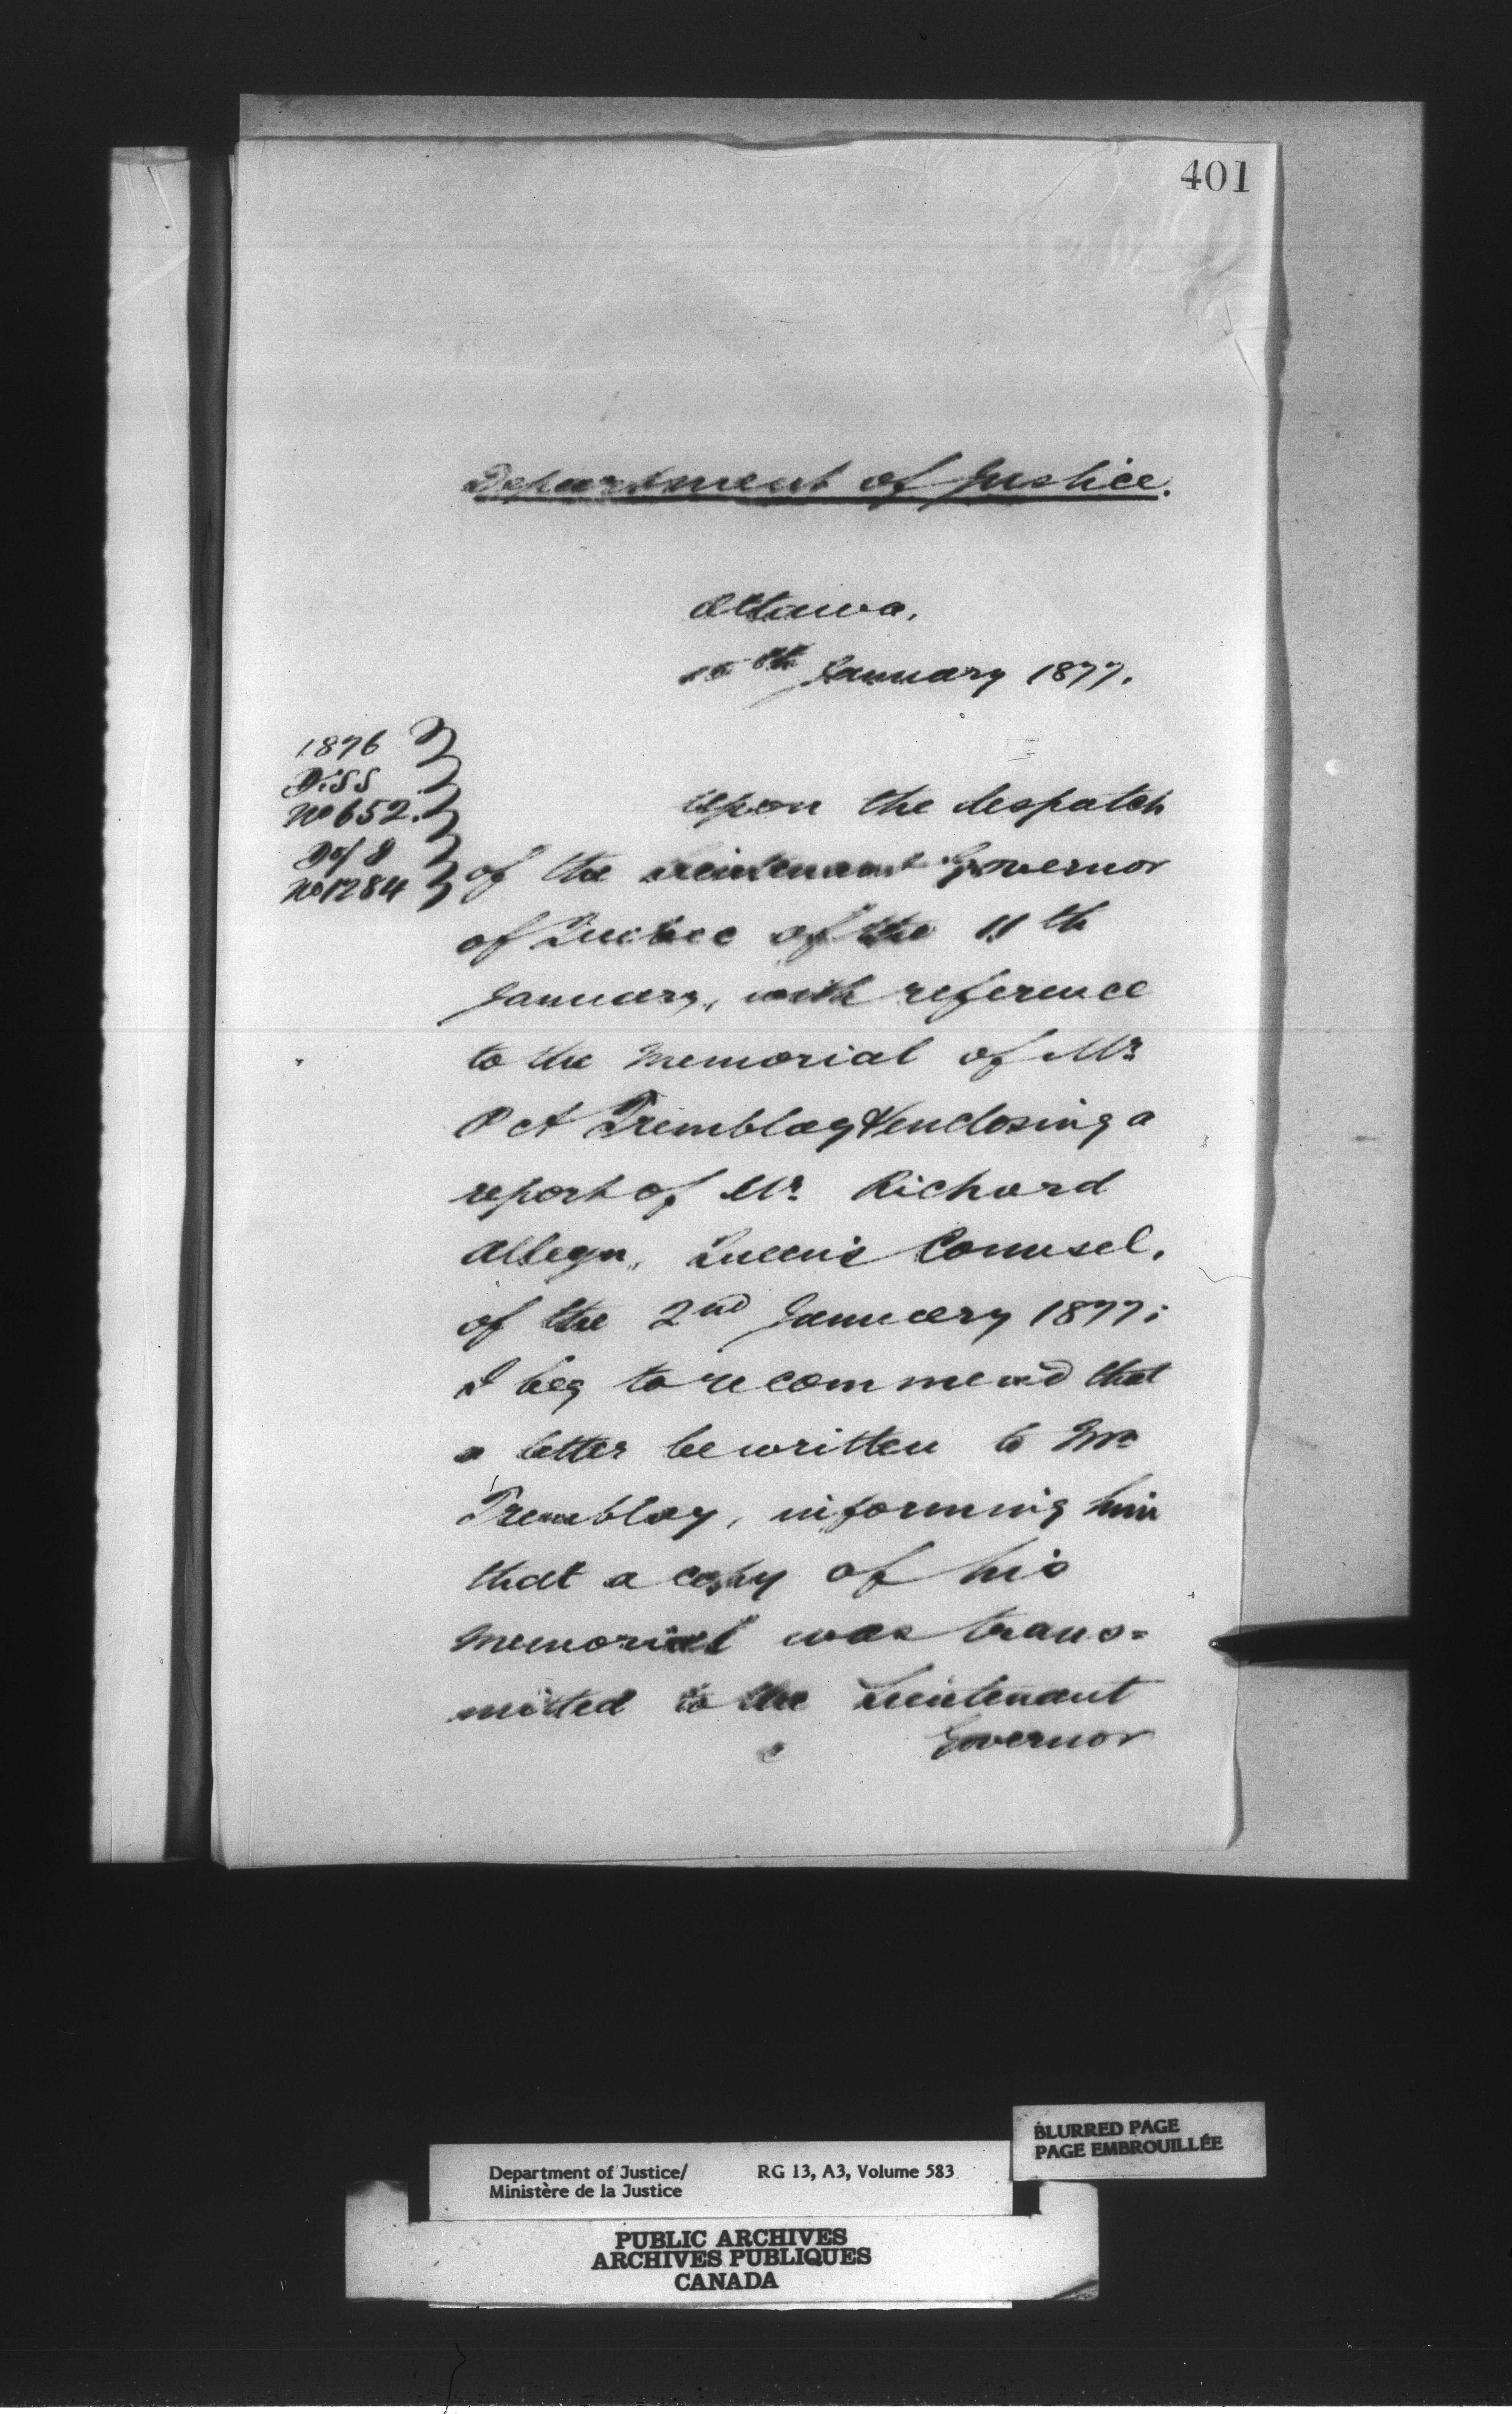 401
Department of Justice.
Ottawa,
15th January 1877.
1876
D.SS
No 652.
D of J
No 1284
Upon the despatch
of the Lieutenant Governor
of Quebec of the 11th
January, with reference
to the Memorial of Mr
P A Tremblay & enclosing a
report of Mr Richard
Alleyn, Queen's Counsel,
of the 2nd January 1877;
I beg to recommend that
a letter be written to Mr
Tremblay, informing him
that a copy of his
memorial was trans=
mitted to the Lieutenant
Governor
BLURRED PAGE
PAGE EMBROUILLÉE
Department of Justice/ RG 13, A3, Volume 583
Ministère de la Justice
PUBLIC ARCHIVES
ARCHIVES PUBLIQUES
CANADA